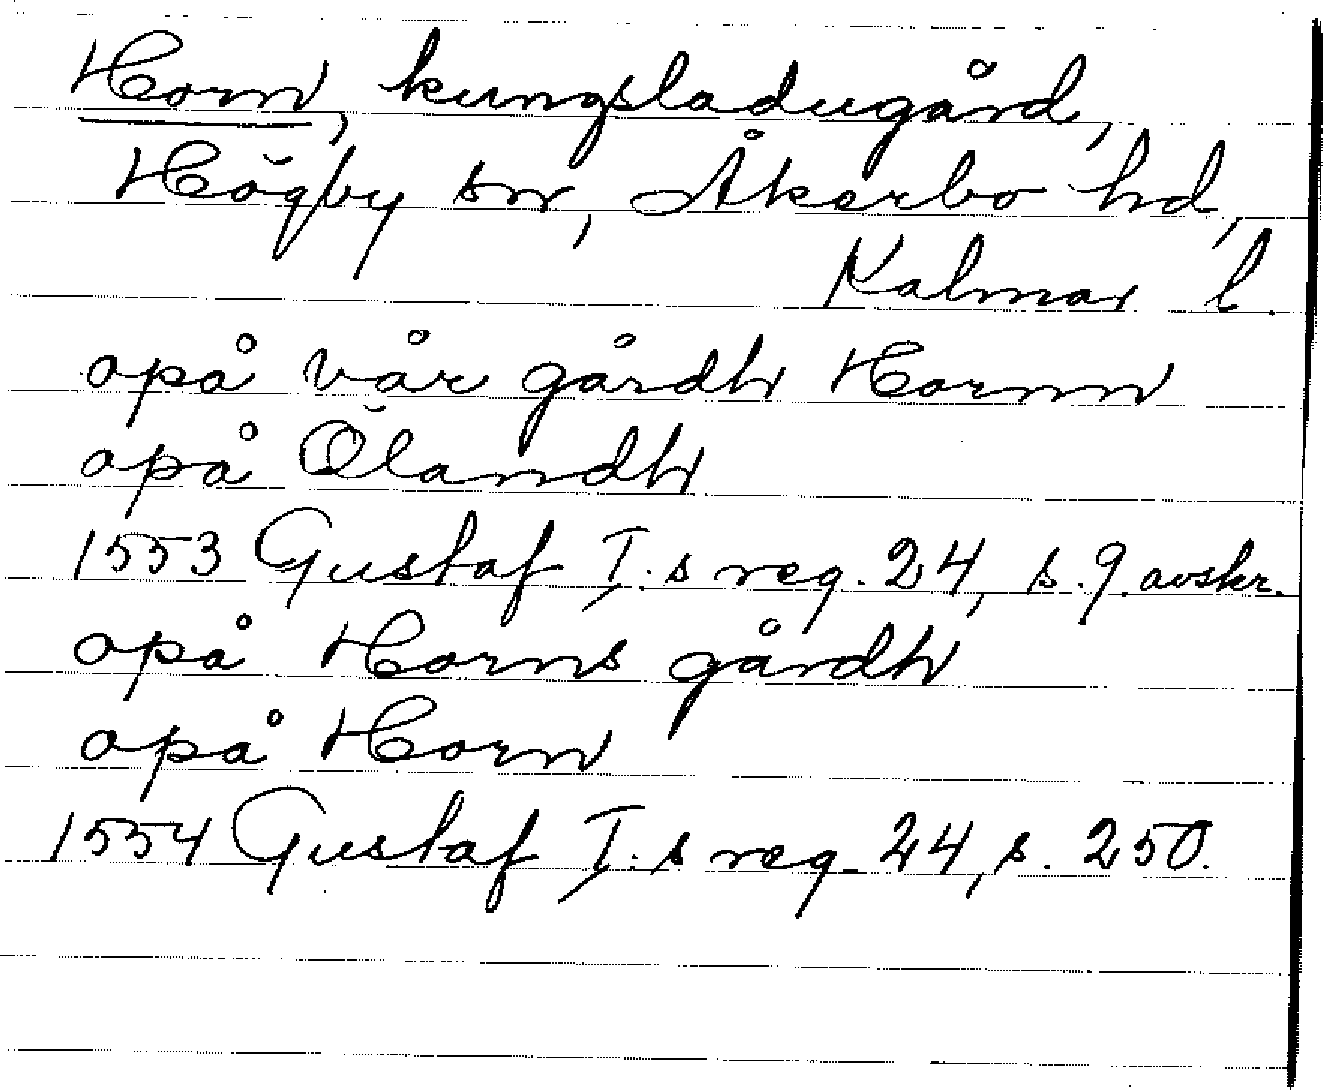 Horn, kungsladugård,
Högby sn, Åkerbo hd,
Kalmar l.
opå vår gårdh Hornn
opå Ölandh
1553 Gustaf I.s reg. 24, s. 9. avskr.
opå Horns gårdh
opå Horn
1554 Gustaf I.s reg. 24, s. 250.